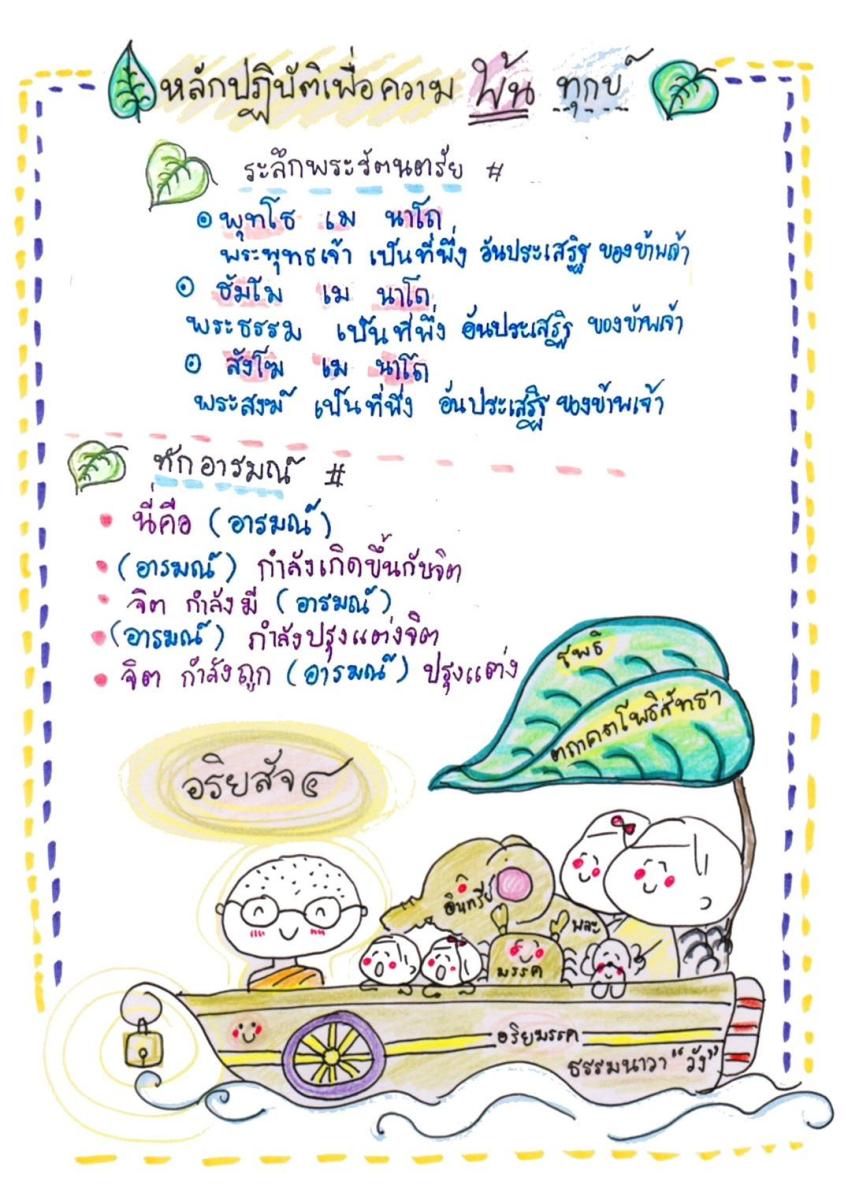 หลักปฏิบัติเพื่อความ พ้น ทุกข์
ระลึกพระรัตนตรัย #
พุทโธ เม นาโถ
พระพุทธเจ้า เป็นที่พึ่ง อันประเสริฐ ของข้าพเจ้า
ธัมโม เม นาโถ
พระธรรม เป็นที่พึ่ง อันประเสริฐ ของข้าพเจ้า
สังโฆ เม นาโถ
พระสงฆ์ เป็นที่พึ่ง อันประเสริฐ ของข้าพเจ้า
ทักอารมณ์ #
• นี่คือ (อารมณ์)
• (อารมณ์) กำลังเกิดขึ้นกับจิต
• จิต กำลังมี (อารมณ์)
• (อารมณ์) กำลังปรุงแต่งจิต
• จิต กำลังถูก (อารมณ์) ปรุงแต่ง
โพธิ
ตถาคตโพธิสัทธา
อริยสัจ ๔
อินทรีย์
พละ
มรรค
อริยมรรค
ธรรมนาวา "วัง"